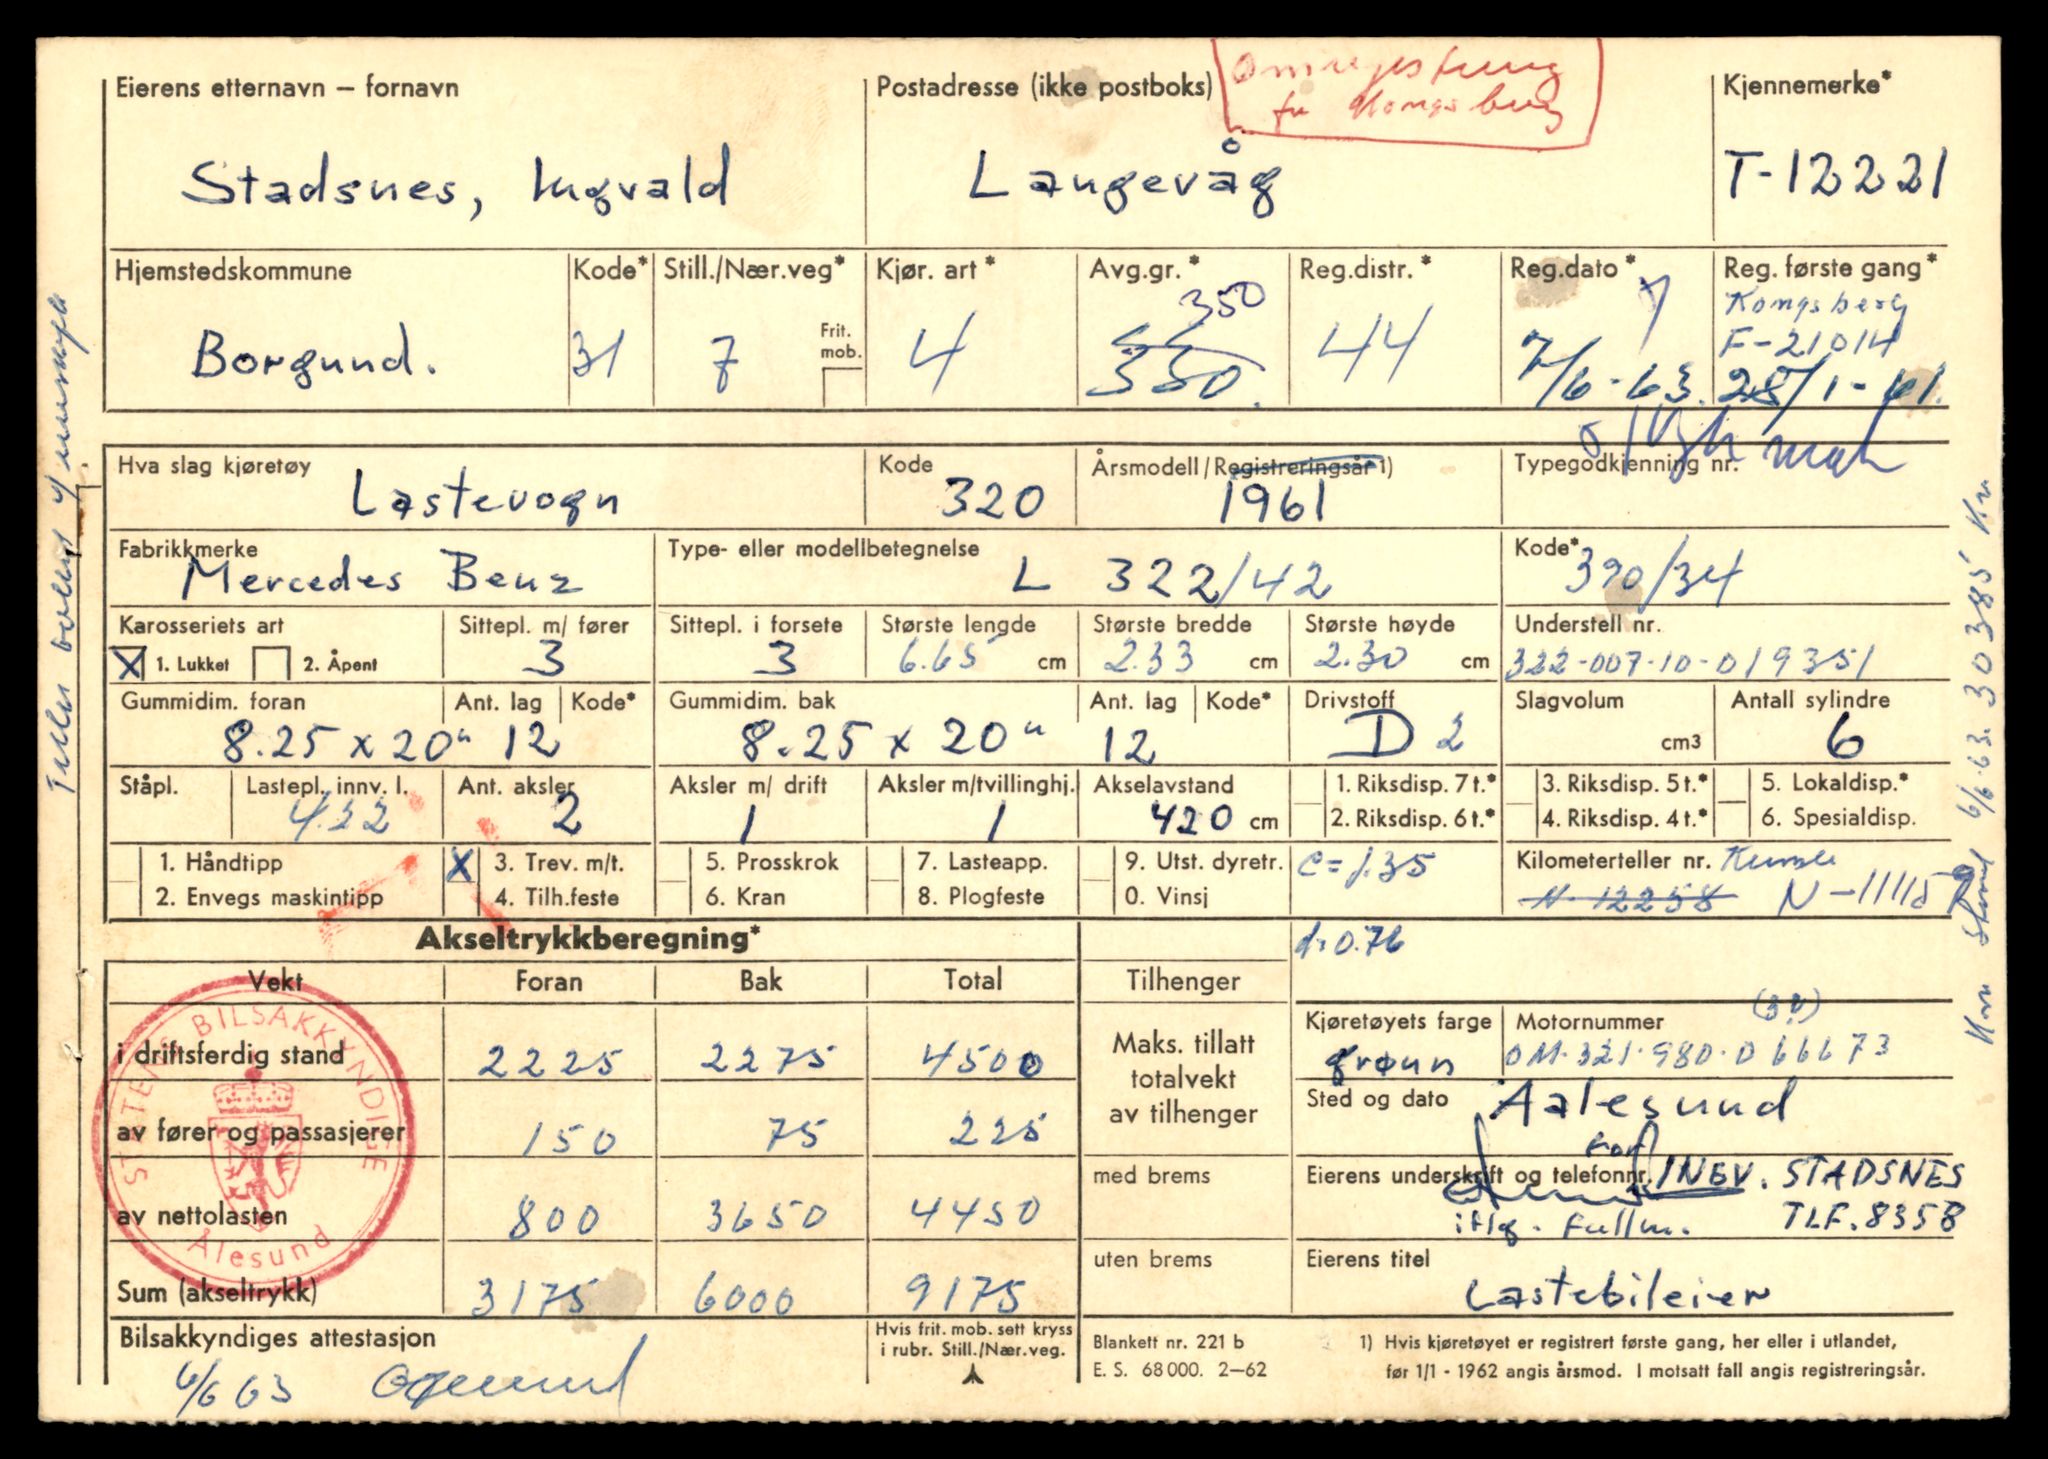 Eierens etternavn – fornavn
Stadsnes, Ingvald
Postadresse (ikke postboks)
Langevåg
Omregistrering
fra Kongsberg
Kjennemerke*
T-12221
Hjemstedskommune
Borgund.
Kode*
31
Still./Nær.veg*
7
Frit.
mob.
Kjør. art*
4
Avg.gr.*
350
350.
Reg.distr.*
44
Reg.dato*
7/6-63.
Reg. første gang*
Kongsberg
F-21014
28/1-61.
Hva slag kjøretøy
Lastevogn
Kode
320
Årsmodell/Registreringsår 1)
1961
Typegodkjenning nr.
Fabrikkmerke
Mercedes Benz
Type- eller modellbetegnelse
L 322/42
Kode*
390/34
Karosseriets art
X 1. Lukket 2. Åpent
Sittepl. m/ fører
3
Sittepl. i forsete
3
Største lengde
6.65 cm
Største bredde
2.33 cm
Største høyde
2.30 cm
Understell nr.
322-007-10-019351
Gummidim. foran
8.25 x 20"
Ant. lag
12
Kode*
Gummidim. bak
8.25 x 20"
Ant. lag
12
Kode*
Drivstoff
D 2
Slagvolum
cm3
Antall sylindre
6
Ståpl.
Lastepl. innv. l.
4.22
Ant. aksler
2
Aksler m/ drift
1
Aksler m/tvillinghj.
1
Akselavstand
420 cm
1. Riksdisp. 7 t.*
2. Riksdisp. 6 t.*
3. Riksdisp. 5 t.*
4. Riksdisp. 4 t.*
5. Lokaldisp.*
6. Spesialdisp.
1. Håndtipp
2. Envegs maskintipp
X 3. Trev. m/t.
4. Tilh.feste
5. Prosskrok
6. Kran
7. Lasteapp.
8. Plogfeste
9. Utst. dyretr.
0. Vinsj
c=1.35
Kilometerteller nr. Kienzle
N-12258 N-11115
Akseltrykkberegning*
d=0.76
Vekt Foran Bak Total
i driftsferdig stand 2225 2275 4500
av fører og passasjerer 150 75 225
av nettolasten 800 3650 4450
Sum (akseltrykk) 3175 6000 9175
STATENS BILSAKKYNDIGE
Ålesund
Tilhenger
Maks. tillatt
totalvekt
av tilhenger
med brems
uten brems
Kjøretøyets farge
grønn
Motornummer
OM-321-980-066673
Sted og dato
Aalesund
Eierens underskrift og telefonnr.
for INGV. STADSNES
iflg. fullm. TLF. 8358
Eierens titel
Lastebileier
Bilsakkyndiges attestasjon
6/6 63
Hvis frit. mob. sett kryss
i rubr. Still./Nær.veg.
Blankett nr. 221 b
E. S. 68 000. 2–62
1) Hvis kjøretøyet er registrert første gang, her eller i utlandet,
før 1/1 - 1962 angis årsmod. I motsatt fall angis registreringsår.
6/6-63. 30385 Kr.